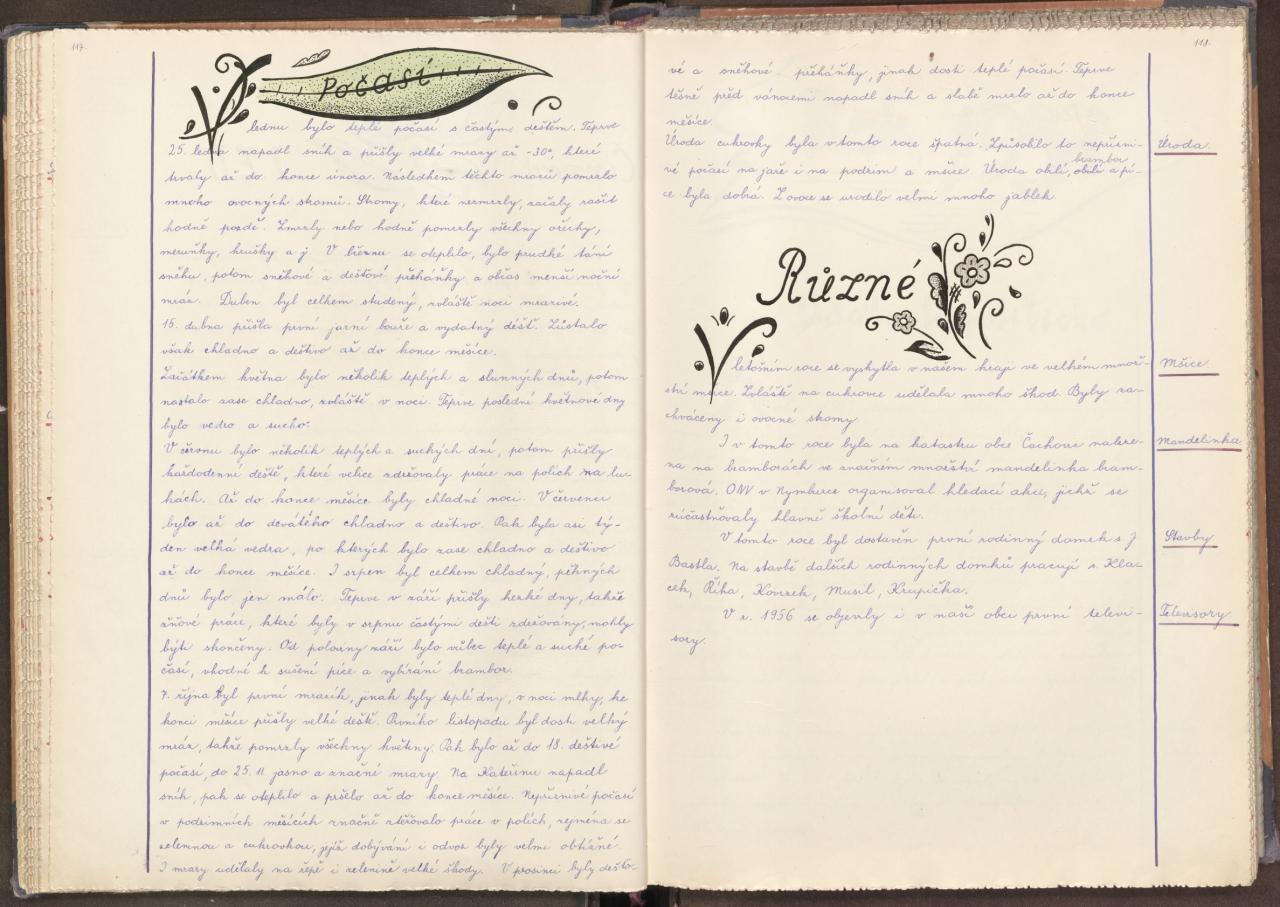 117.
Počasí
V lednu bylo teplé počasí s častým deštěm. Teprve
25. ledna napadl sníh a přišly velké mrazy až -30°, které
trvaly až do konce února. Následkem těchto mrazů pomrzlo
mnoho ovocných stromů. Stromy, které nezmrzly, začaly rašit
hodně pozdě. Zmrzly nebo hodně pomrzly všechny ořechy,
meruňky, hrušky a j. V březnu se oteplilo, bylo prudké tání
sněhu, potom sněhové a dešťové přeháňky a občas menší noční
mráz. Duben byl celkem studený, zvláště noci mrazivé.
15. dubna přišla první jarní bouře a vydatný déšť. Zůstalo
však chladno a deštivo až do konce měsíce.
Začátkem května bylo několik teplých a slunných dnů, potom
nastalo zase chladno, zvláště v noci. Teprve poslední květnové dny
bylo vedro a sucho.
V červnu bylo několik teplých a suchých dní, potom přišly
každodenní deště, které velice zdržovaly práce na polích na lu-
kách. Až do konce měsíce byly chladné noci. V červenci
bylo až do devátého chladno a deštivo. Pak byla asi tý-
den velká vedra, po kterých bylo zase chladno a deštivo
až do konce měsíce. I srpen byl celkem chladný, pěkných
dnů bylo jen málo. Teprve v září přišly hezké dny, takže
žňové práce, které byly v srpnu častými dešti zdržovány, mohly
býti skončeny. Od poloviny září bylo vůbec teplé a suché po-
časí, vhodné k sušení píce a vybírání brambor.
7. října byl první mrazík, jinak byly teplé dny, v noci mlhy, ke
konci měsíce přišly velké deště. Prvního listopadu byl dosti velký
mráz, takže pomrzly všechny květiny. Pak bylo až do 18. deštivé
počasí, do 25. 11 jasno a značné mrazy. Na Kateřinu napadl
sníh, pak se oteplilo a pršelo až do konce měsíce. Nepříznivé počasí
v podzimních měsících značně ztěžovalo práce v polích, zejména se
zelemnou a cukrovkou, jejíž dobývání i odvoz byly velmi obtížné.
I mrazy udělaly na řepě i zelenině velké škody. V prosinci byly dešťo-
118.
vé a sněhové přeháňky, jinak dosti teplé počasí. Teprve
těsně před vánocemi napadl sníh a slabě mrzlo až do konce
měsíce.
Úroda cukrovky byla v tomto roce špatná. Způsobilo to nepřízni-
Úroda
vé počasí na jaře i na podzim a mšice. Úroda obilí, brambor obilí a pí-
ce byla dobrá. Z ovoce se urodilo velmi mnoho jablek.
Různé
V letošním roce se vyskytla v našem kraji ve velkém množ-
Mšice
ství mšice. Zvláště na cukrovce udělala mnoho škod. Byly za-
chváceny i ovocné stromy.
I v tomto roce byla na katastru obce Čachovic naleze-
Mandelinka
na na bramborách ve značném množství mandelinka bram-
borová. ONV v Nymburce organisoval hledací akci, jichž se
zúčastňovaly hlavně školní děti.
V tomto roce byl dostavěn první rodinný domek s. J
Stavby
Bastla. Na stavbě dalších rodinných domků pracují s. Kla-
cek, Říha, Musil, Krupička.
V r. 1956 se objevily i v naší obci první televi-
Televisory
sory.